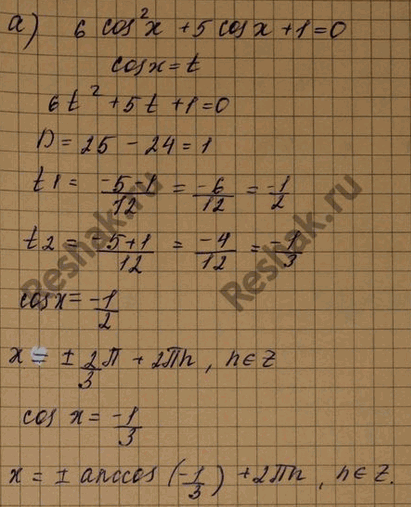 а) 6 cos²x + 5 cosx + 1 = 0
cosx = t
6t² + 5t + 1 = 0
D = 25 - 24 = 1
t1 = -5-1/12 = -6/12 = -1/2
t2 = -5+1/12 = -4/12 = -1/3
cosx = -1/2
x = ± 2/3 π + 2πn, n∈Z
cos x = -1/3
x = ± arccos (-1/3) + 2πn, n∈Z.
Reshak.ru
Reshak.ru